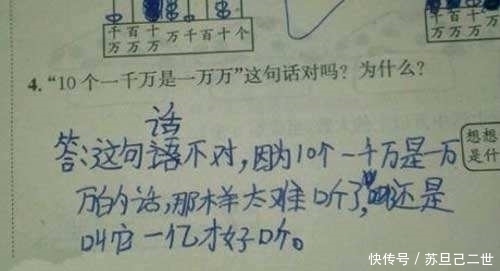 千百十万千百十个
万万万
4.“10个一千万是一万万”这句话对吗？为什么？
话
答:这句语不对,因为10个一千万是一万
万的话,那样太难听了,还是
叫它一亿才好听。
想想
是什
快传号/苏旦己二世